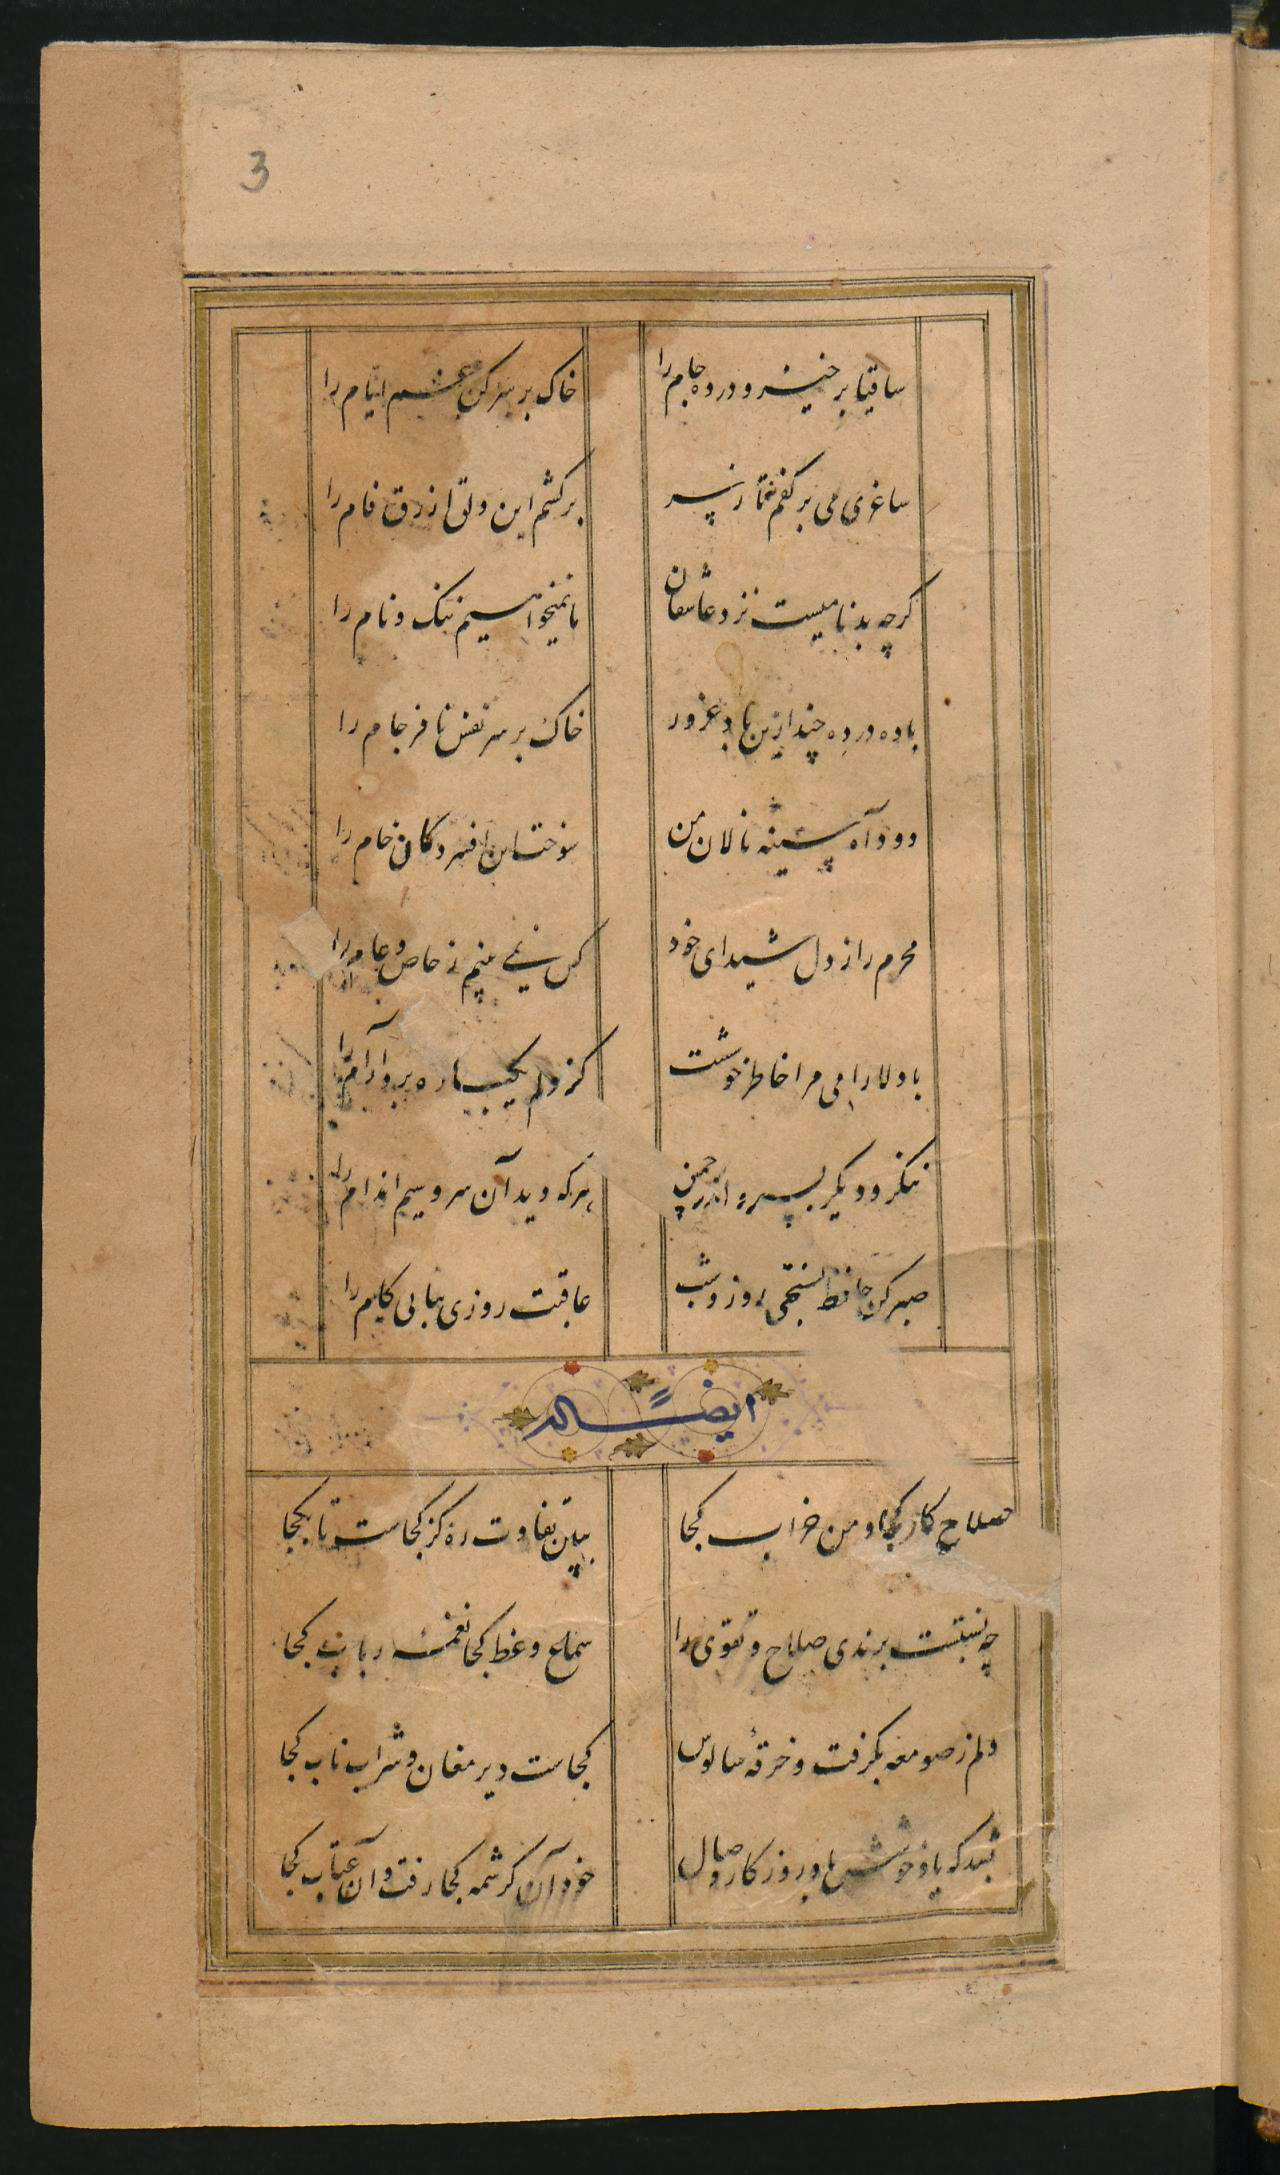 3
ساقیا برخیز و درده جام را خاک بر سر کن غم ایام را
ساغری می بر کفم نه تا ز سر برکشم این دلق ازرق فام را
گرچه بدنامیست نزد عاشقان ما نمیخواهیم ننگ و نام را
باده درده چند ازین باد غرور خاک بر سر نفس نافرجام را
دود آه سینه نالان من سوخت این افسردگان خام را
محرم راز دل شیدای خود کس نمی بینم ز خاص و عام را
با دلارامی مرا خاطر خوشست کز دلم یکباره برد آرام را
ننگرد دیگر بسرو اندر چمن هرکه دید آن سرو سیم اندام را
صبر کن حافظ بسختی روز و شب عاقبت روزی بیابی کام را
ایضاً له
صلاح کار کجا و من خراب کجا ببین تفاوت ره کز کجاست تا بکجا
چه نسبتست برندی صلاح و تقوی را سماع وعظ کجا نغمه رباب کجا
دلم ز صومعه بگرفت و خرقهٔ سالوس کجاست دیر مغان و شراب ناب کجا
بشد که یاد خوشش باد روزکار وصال خود آن کرشمه کجا رفت و آن عتاب کجا